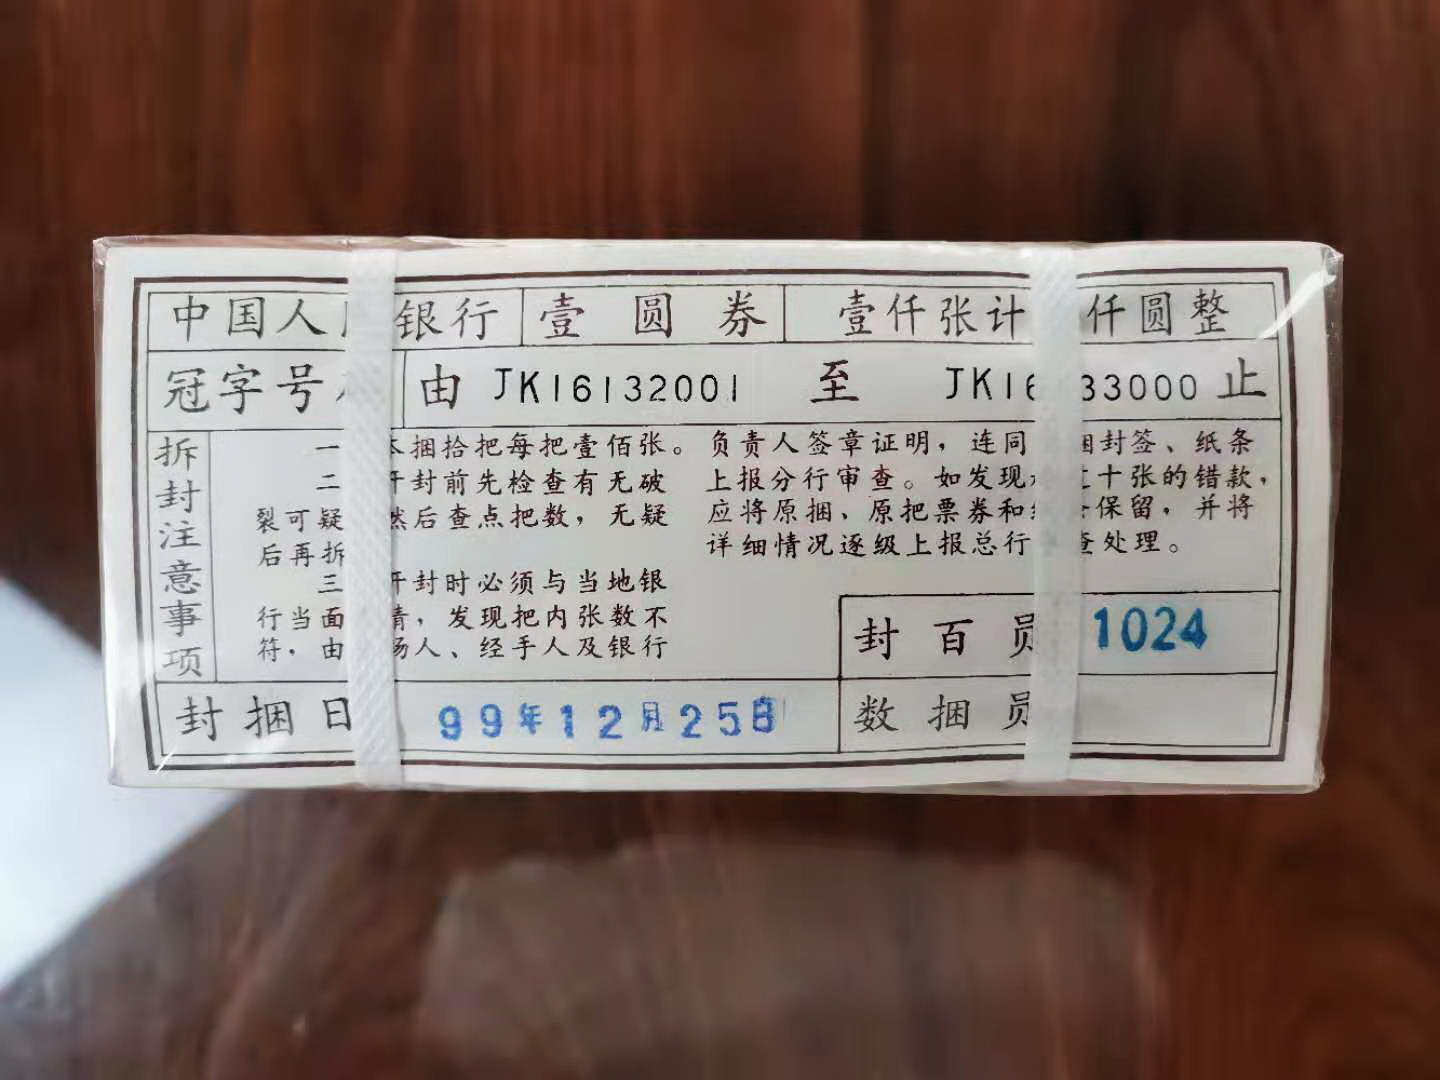 中国人 银行 壹圆券 壹仟张计 仟圆整
冠字号 由 JK16132001 至 JK16 33000 止
拆封注意事项
一 本捆拾把每把壹佰张。
二 开封前先检查有无破
裂可疑 然后查点把数，无疑
后再拆
三 开封时必须与当地银
行当面 清，发现把内张数不
符，由 场人、经手人及银行
负责人签章证明，连同 捆封签、纸条
上报分行审查。如发现 过十张的错款，
应将原捆、原把票券和 保留，并将
详细情况逐级上报总行 查处理。
封百员 1024
封捆日 99年12月25日
数捆员